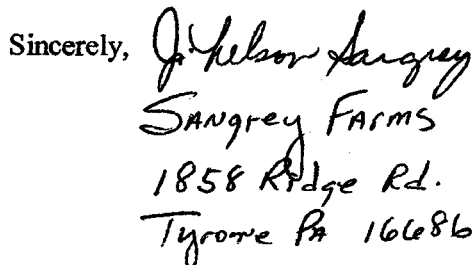 Sincerely, J. Nelson Sangrey
Sangrey Farms
1858 Ridge Rd.
Tyrone PA 16686